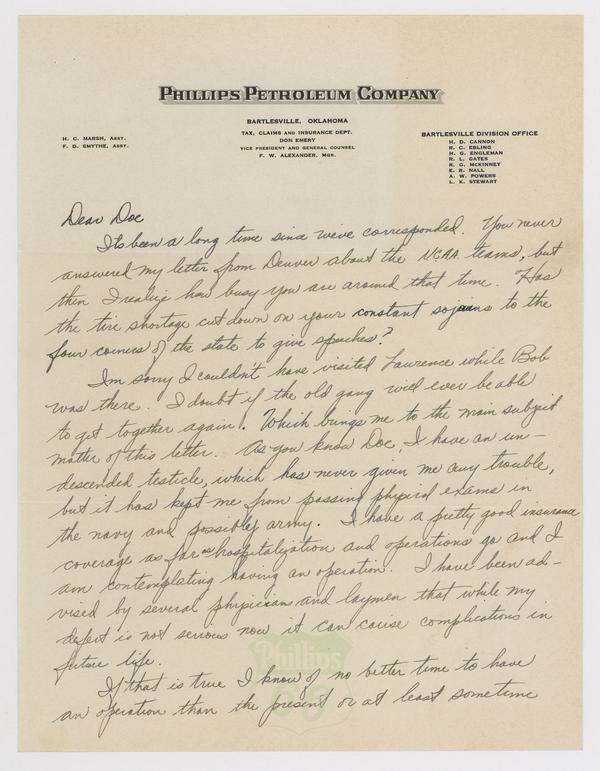 PHILLIPS PETROLEUM COMPANY
BARTLESVILLE, OKLAHOMA
TAX, CLAIMS AND INSURANCE DEPT.
DON EMERY
VICE PRESIDENT AND GENERAL COUNSEL
F. W. ALEXANDER, MGR.
H. C. MARSH, ASST.
F. D. SMYTHE, ASST.
BARTLESVILLE DIVISION OFFICE
H. D. CANNON
R. C. EBLING
H. G. ENGLEMAN
R. L. GATES
R. G. MCKINNEY
E. R. NALL
A. W. POWERS
L. K. STEWART
Dear Doc
Its been a long time since we've corresponded. You never
answered my letter from Denver about the NCAA teams, but
then I realize how busy you are around that time. Has
the tire shortage cut down on your constant sojourns to the
four corners of the state to give speaches?
Im sorry I couldn't have visited Lawrence while Bob
was there. I doubt if the old gang will ever be able
to get together again. Which brings me to the main subject
matter of this letter. As you know Doc, I have an un-
descended testicle, which has never given me any trouble,
but it has kept me from passing physical exams in
the navy and possibly army. I have a pretty good insurance
coverage as far as hospitalization and operations go and I
am contemplating having an operation. I have been ad-
vised by several physicians and laymen that while my
defect is not serious now it can cause complications in
future life.
If that is true I know of no better time to have
an operation than the present or at least sometime
Phillips
66